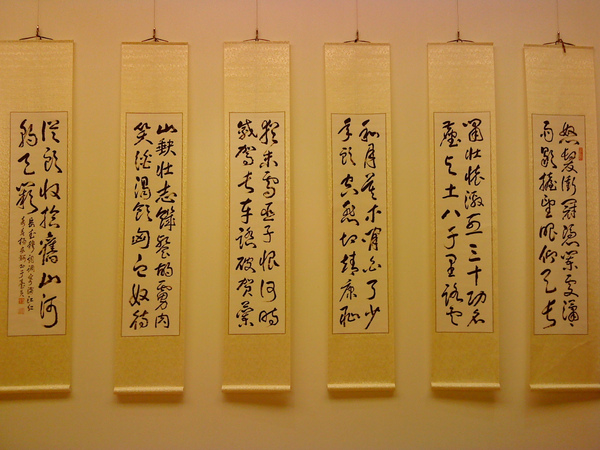 怒髮衝冠憑闌處瀟瀟
雨歇擡望眼仰天長
嘯壯懷激烈三十功名
塵與土八千里路雲
和月莫等閒白了少
年頭空悲切靖康恥
猶未雪臣子恨何時
滅駕長車踏破賀蘭
山缺壯志飢餐胡虜肉
笑談渴飲匈奴待
從頭收拾舊山河
朝天闕